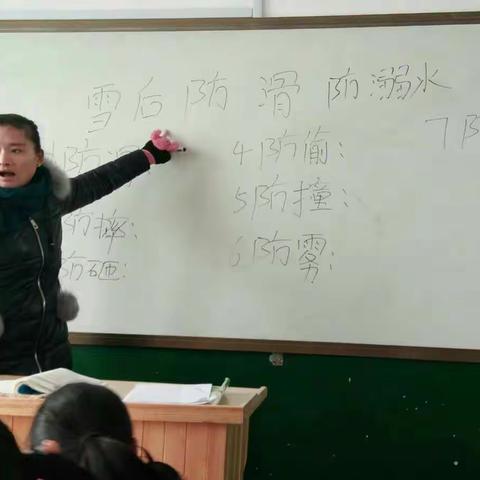 雪后防滑 防溺水
防
4防偷:
7防
防摔:
5防撞:
防砸:
6防雾: